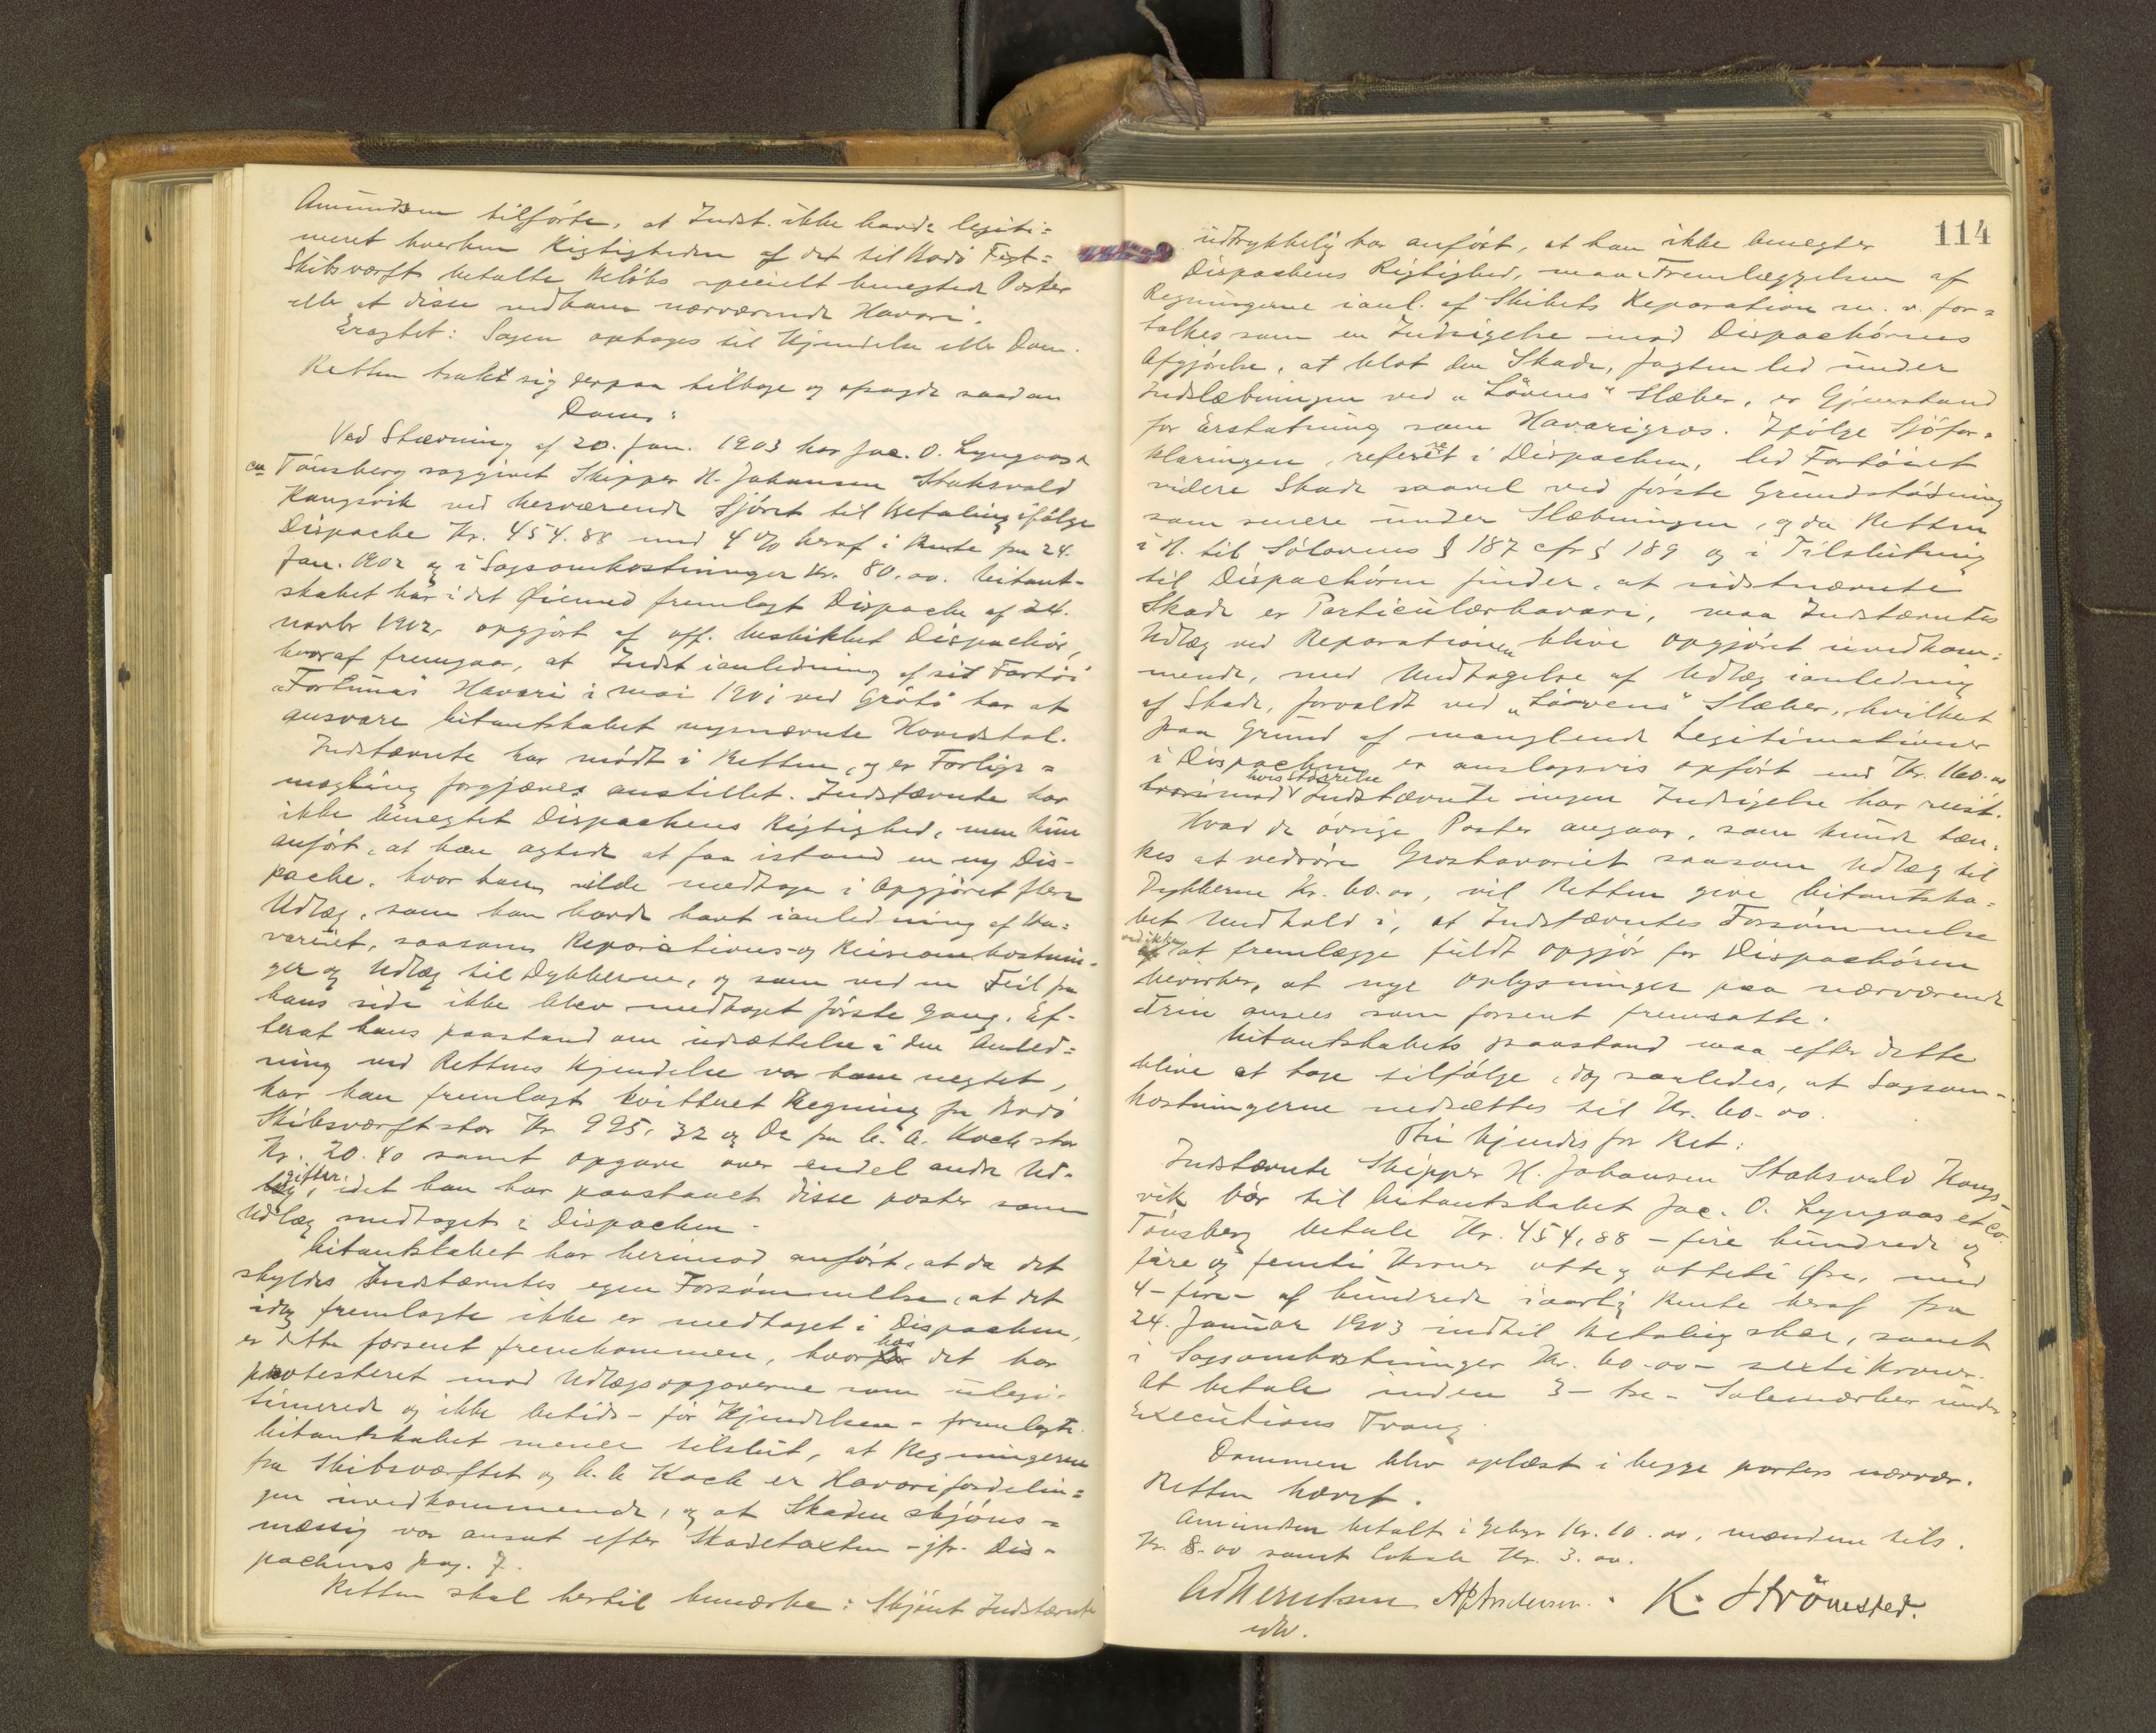 Amundsen tilførte, at Indst. ikke havde legiti=
meret hverken Rigtigheden af det til Bodø
Skibsværft betalte Beløbs specielt benegtede Poster
eller at disse vedkom nærværende Havari.
Eragtet: Sagen optages til Kjendelse eller Dom.
Retten trak sig derpaa tilbage og afsagde saadan
Dom:
Ved Stævning af 20. Jan. 1903 har Jac. O. Lyngaas &
co Tönsberg saggivet Skipper H. Johansen Stoksvold
Kangsvik ved hersværende Sjöret til Betaling ifølge
Dispache Kr. 454.88 med 4 % heraf i Rente fra 24.
Jan. 1902 og i Sagsomkostninger Kr. 80.00. Citant-
skabet har i det Øiemed fremlagt Dispache af 24.
novbr 1902, opgjort af off. beskikket Dispachør,
hvoraf fremgaar, at Indst ianledning af sit Fartøi
"Fortunas" Havari i mai 1901 ved Grøtø har at
ansvare Citantskabet nysnævnte Hovedstol.
Indstævnte har mødt i Retten, og er Forligs=
mægling forgjæves anstillet. Indstævnte har
ikke benegtet Dispachens Rigtighed, men kun
anført, at han agtede at faa istand en ny Dis-
pache, hvor han vilde medtage i Opgjøret flere
Udlæg, som han havde havt ianledning af Ha=
variet, saasom Reparations- og Reiseomkostnin-
ger og Udlæg til Dykkerne, og som ved en Feil fra
hans side ikke blev medtaget første Gang. Ef-
terat hans paastand om udsættelse i den Anled=
ning ved Rettens Kjendelse var ham negtet,
har han fremlagt kvitteret Regning fra Bodø
Skibsværft stor Kr. 995,32 og Do fra C. A. Koch stor
Kr. 20.40 samt opgave over endel andre Ud-
gifter, idet han har paastaaet disse poster som
Udlæg medtaget i Dispachen.
Citantskabet har herimod anført, at da det
skyldes Indstævntes egen Forsømmelse, at det
idag fremlagte ikke er medtaget i Dispachen,
er dette forsent fremkommen, hvorhos det har
protesteret mod Udlægsopgaverne som ulegi-
timerede og ikke betids - før Kjendelsen - fremlagte.
Citantskabet mener tilslut, at Regningerne
fra Skibsværftet og C. A. Koch er Havarifordelin=
gen uvedkommende, og at Skaden skjøns=
mæssig var ansat efter Skadetaxten - jfr. Dis-
pachens pag. 7.
Retten skal hertil bemærke: Skjönt Indstævnte
114
udtrykkelig har anført, at han ikke benegter
Dispachens Rigtighed, maa Fremlæggelsen af
Regningerne ianl. af Skibets Reparation m. v. for=
tolkes som en Indsigelse mod Dispachørens
Afgjørelse, at blot den Skade, Jagten led under
Indslæbningen ved "Løvens" Slæber, er Gjenstand
for Erstatning som Havarigros. Ifølge Sjöfor=
klaringen, refereret i Dispachen, led Fartøiet
videre Skade saavel ved første Grundstødning
som senere under Slæbningen, og da Retten
i H. til Sølovens § 187 cfr § 189 og i Tilslutning
til Dispachøren finder, at sidstnævnte
Skade er Particulærhavari, maa Indstævntes
Udlæg ved Reparationen blive Opgjøret uvedkom=
mende, med Undtagelse af Udlæg ianledning
af Skade, forvoldt ved "Løvens" Slæber, hvilket
paa Grund af manglende Legitimationer
i Dispachen er anslagsvis opført med Kr. 160.00
mod hvis Størrelse Indstævnte ingen Indsigelse har reist.
Hvad de øvrige Poster angaar, som kunde tæn=
kes at vedrøre Groshavariet saasom Udlæg til
Dykkerne Kr. 60.00, vil Retten give Citantska=
bet Medhold i, at Indstævntes Forsømmelse
ved ikke at fremlægge fuldt opgjør for Dispachøren
bevirker, at nye Oplysninger paa nærværende
Trin ansees som forsent fremsatte.
Citantskabets paastand maa efter dette
blive at tage tilfølge, dog saaledes, at Sagsom-
kostningerne nedsættes til Kr. 60.00.
Thi kjendes for Ret:
Indstævnte Skipper H. Johansen Stoksvold Kangs-
vik bør til Citantskabet Jac. O. Lyngaas et Co.
Tönsberg betale Kr. 454,88 - fire hundrede og
fire og femti Kroner otte og otteti Øre, med
4 - fire - af hundrede i aarlig Rente heraf fra
24. Januar 1903 indtil Betaling sker, samt
i Sagsomkostninger Kr. 60.00 - sexti Kroner.
At betale inden 3 - tre - Solemærker under
Executions Tvang.
Dommen blev oplæst i begge parters nærvær.
Retten hævet.
Amundsen betalt i Gebyr Kr. 10.00, mændene tils.
Kr. 8.00 samt lokale Kr. 3.00.
K. Strömsted.